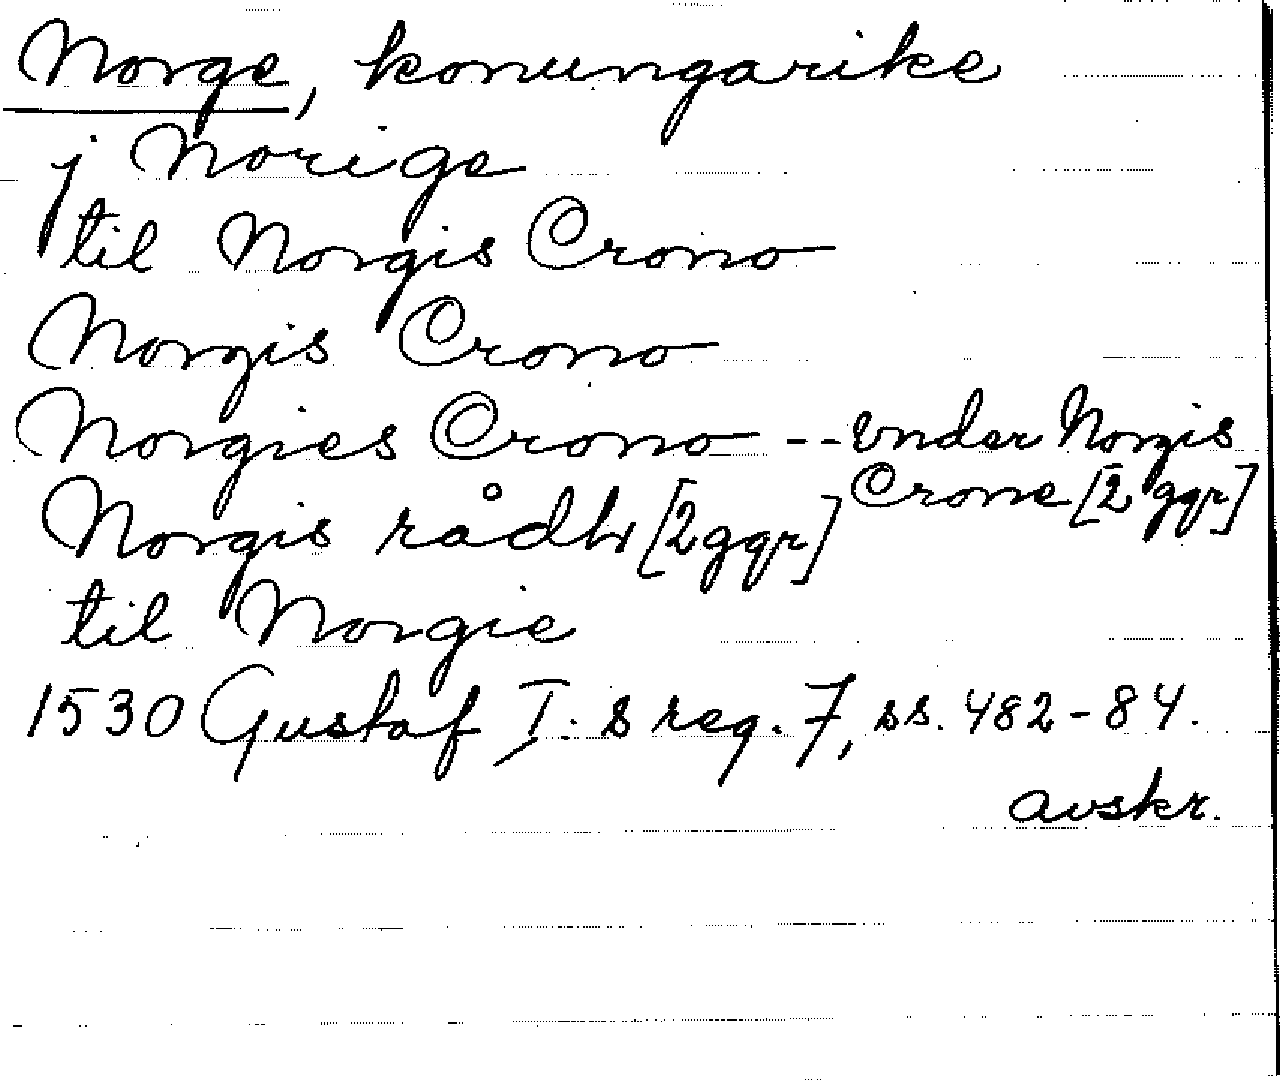 Norge, konungarike
j Norige
til Norgis Crono
Norgis Crono
Norgies Crono -- vnder Norgis
Crone [2 ggr]
Norgis rådh [2 ggr]
til Norgie
1530 Gustaf I:s reg. 7, ss. 482-84.
avskr.